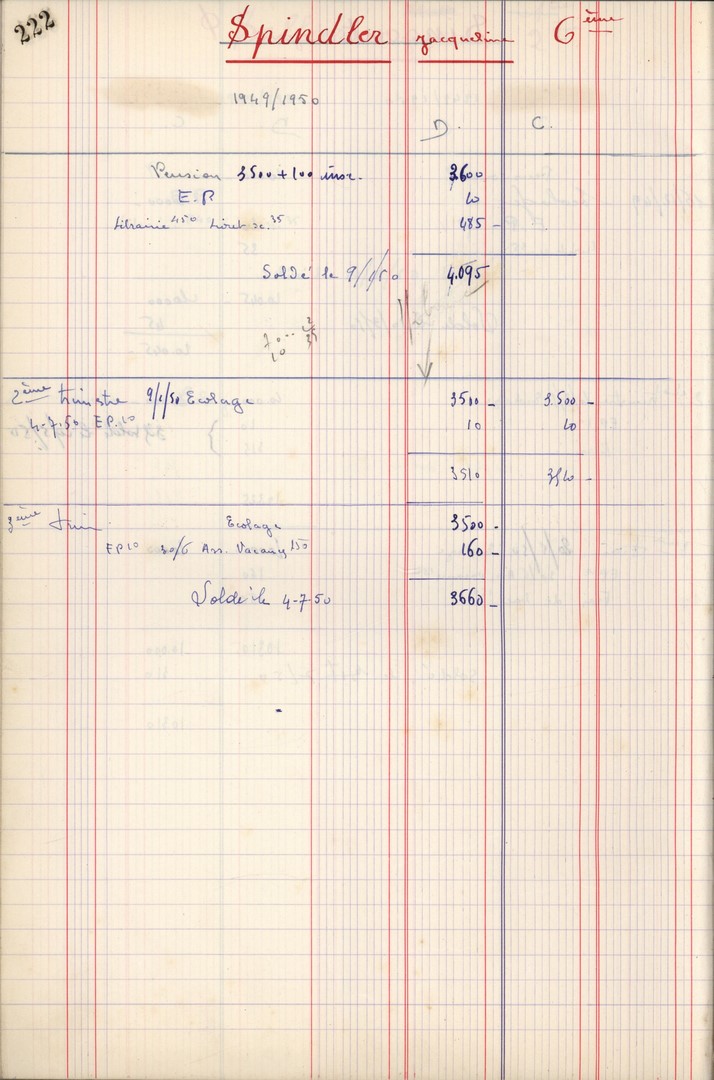 222
Spindler Jacqueline 6ème
1949/1950
D. C.
Pension 3500 + 100 inscr. 3600
E.P. 10
Librairie 450 Livret sc. 35 485 -
Soldé le 9/1/50 4.095
2ème trimestre 9/1/50 Ecolage 3500 - 3.500 -
4-7-50 EP 10 10 10
3510 3510 -
3ème trim Ecolage 3500 -
EP 10 30/6 Ass. Vacances 150 160 -
Soldé le 4-7-50 3660 -